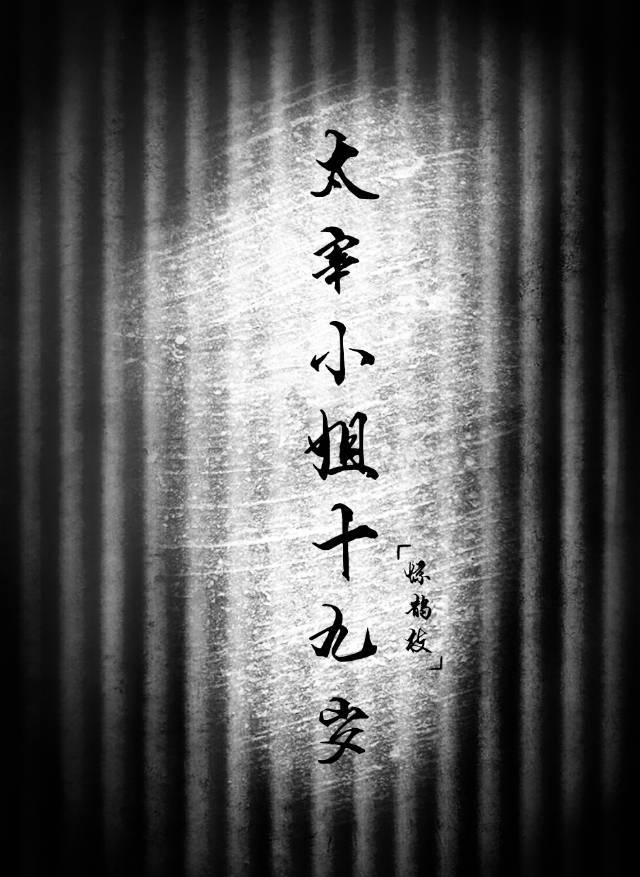 太宰小姐十九岁
「惊鹊枝」